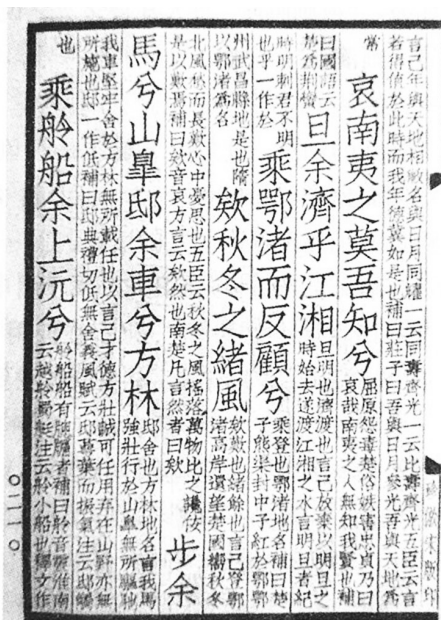 言己年與天地相敝名與日月同耀一云同壽齊光一云比壽齊光五臣云言
若得值於此時而我年德冀如是也補曰莊子曰吾與日月參光吾與天地為
常
哀南夷之莫吾知兮
屈原怨毒楚俗嫉害忠貞乃曰
哀哉南夷之人無知我賢也補
曰國語云
楚為荊蠻
旦余濟乎江湘
旦明也濟渡也言己放棄以明旦之
時始去遂渡江湘之水言明旦者紀
時明刺君不明
也乎一作於
乘鄂渚而反顧兮
乘登也鄂渚地名補曰楚
子熊渠封中子紅於鄂鄂
州武昌縣地是也隋
以鄂渚為名
欸秋冬之緒風
欸歎也緒餘也言己登鄂
渚高岸還望楚國嚮秋冬
北風愁而長歎心中憂思也五臣云秋冬之風搖落萬物比之讒佞
是以歎焉補曰欸音哀方言云欸然也南楚凡言然者曰欸
步余
馬兮山皋邸余車兮方林
邸舍也方林地名言我馬
強壯行於山皋無所驅馳
我車堅牢舍於方林無所載任也以言己才德方壯誠可任用棄在山野亦無
所施也邸一作低補曰邸典禮切低無舍義風賦云邸萼葉而振氣注云邸觸
也
乘舲船余上沅兮
舲船船有牕牖者補曰舲音靈淮南
云越舲蜀艇注云舲小船也釋文作
〇二一〇